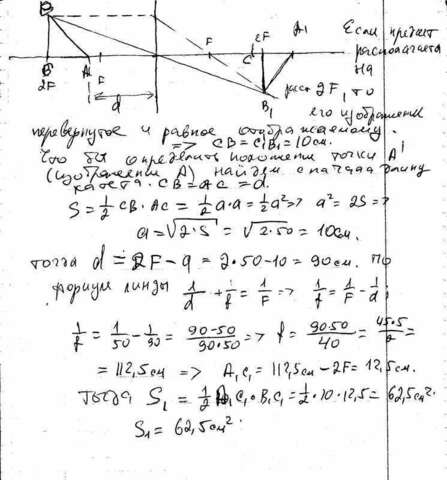 B
F
2F
C
A1
Если предмет
располагается
на
Б
A
F
2F
d
B₁
расст 2F, то
его изображение
перевернутое и равное отображаемому.
=> CB = C₁B₁ = 10см.
Что бы определить положение точки A¹
(изображения A) найдем сначала длину
катета. CB = AC = a.
S = 1/2 CB · AC = 1/2 a·a = 1/2 a² => a² = 2S =>
a = √2·S = √2·50 = 10см.
тогда d = 2F - a = 2·50 - 10 = 90см. по
формуле линзы 1/d + 1/f = 1/F => 1/f = 1/F - 1/d;
1/f = 1/50 - 1/90 = 90-50/90·50 => f = 90·50/40 = 45·5/2 =
= 112,5см => A₁C₁ = 112,5см - 2F = 12,5см.
Тогда S₁ = 1/2 A₁C₁ · B₁C₁ = 1/2 · 10 · 12,5 = 62,5см².
S₁ = 62,5см²